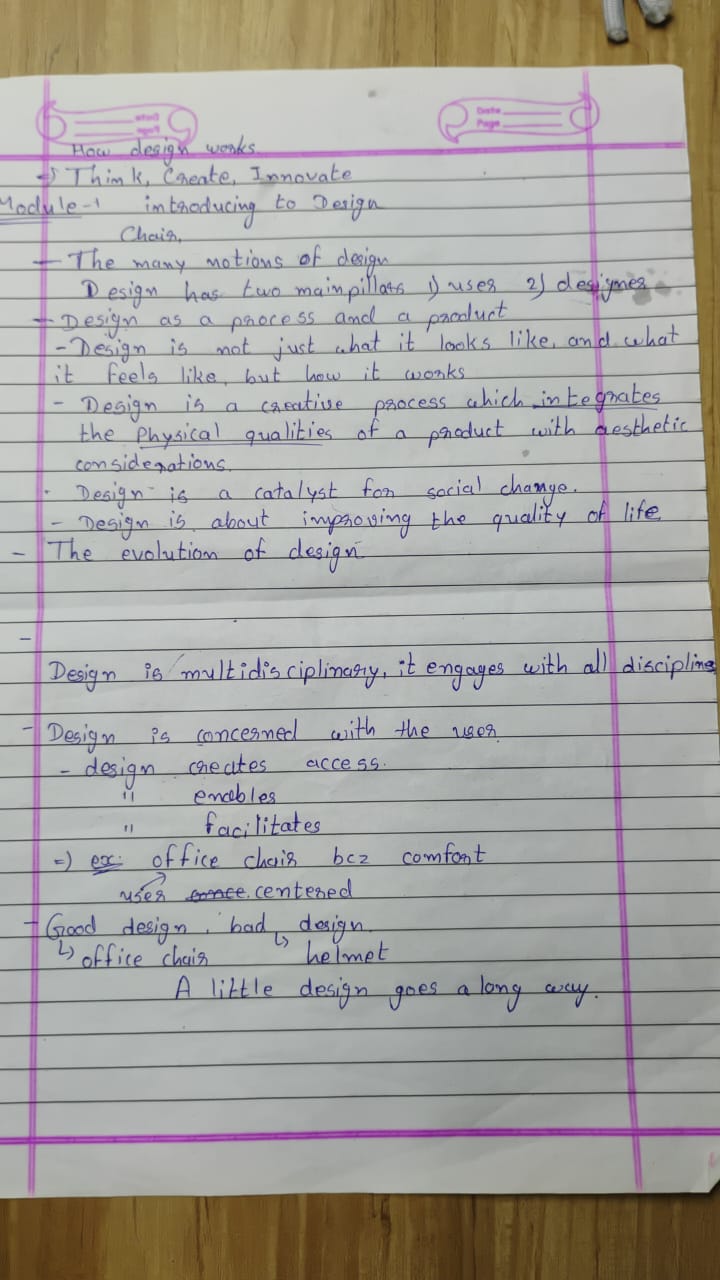 Date
Page
Date
Page
How design works.
=) Think, Create, Innovate
Module-1 introducing to Design
Chair,
- The many notions of design
Design has two main pillars 1) user 2) designer
- Design as a process and a product
- Design is not just what it looks like, and what
it feels like, but how it works
- Design is a creative process which integrates
the physical qualities of a product with aesthetic
considerations.
- Design is a catalyst for social change.
- Design is about improving the quality of life
- The evolution of design
-
Design is multidisciplinary, it engages with all discipline
- Design is concerned with the user
- design creates access.
" enables
" facilitates
=) ex: office chair bcz comfort
user centered
- Good design, bad design.
↳ office chair ↳ helmet
A little design goes a long way.